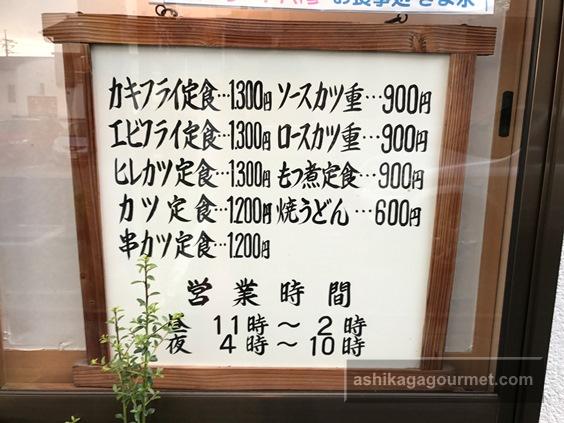 お食事処 きよ水
カキフライ定食…1,300円 ソースカツ重…900円
エビフライ定食…1,300円 ロースカツ重…900円
ヒレカツ定食…1,300円 もつ煮定食…900円
カツ定食…1,200円 焼うどん…600円
串カツ定食…1,200円
営業時間
昼 11時～2時
夜 4時～10時
ashikagagourmet.com